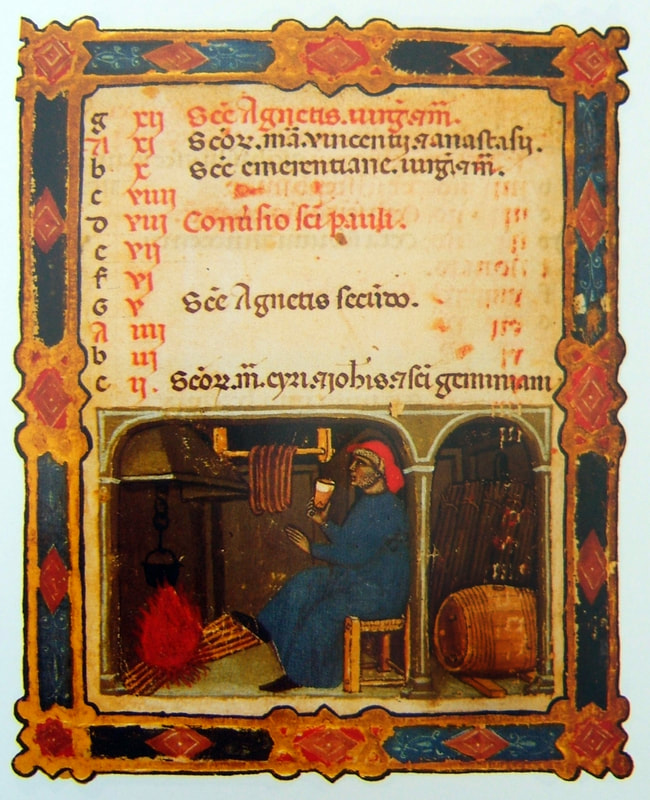 g xii Scē Agnetis. uirg̃. ⁊ m̃.
A xi Scōꝝ. m̃. uincentii ⁊ anastasii.
b x Scē emerentiane. uirg̃. ⁊ m̃.
c viiii
D viii Conũsio sci pauli.
e vii
f vi
G v Scē Agnetis secūdo.
A iiii
b iii
c ii. Scōꝝ. m̃. cyri ⁊ ioħis ⁊ sci geminiani